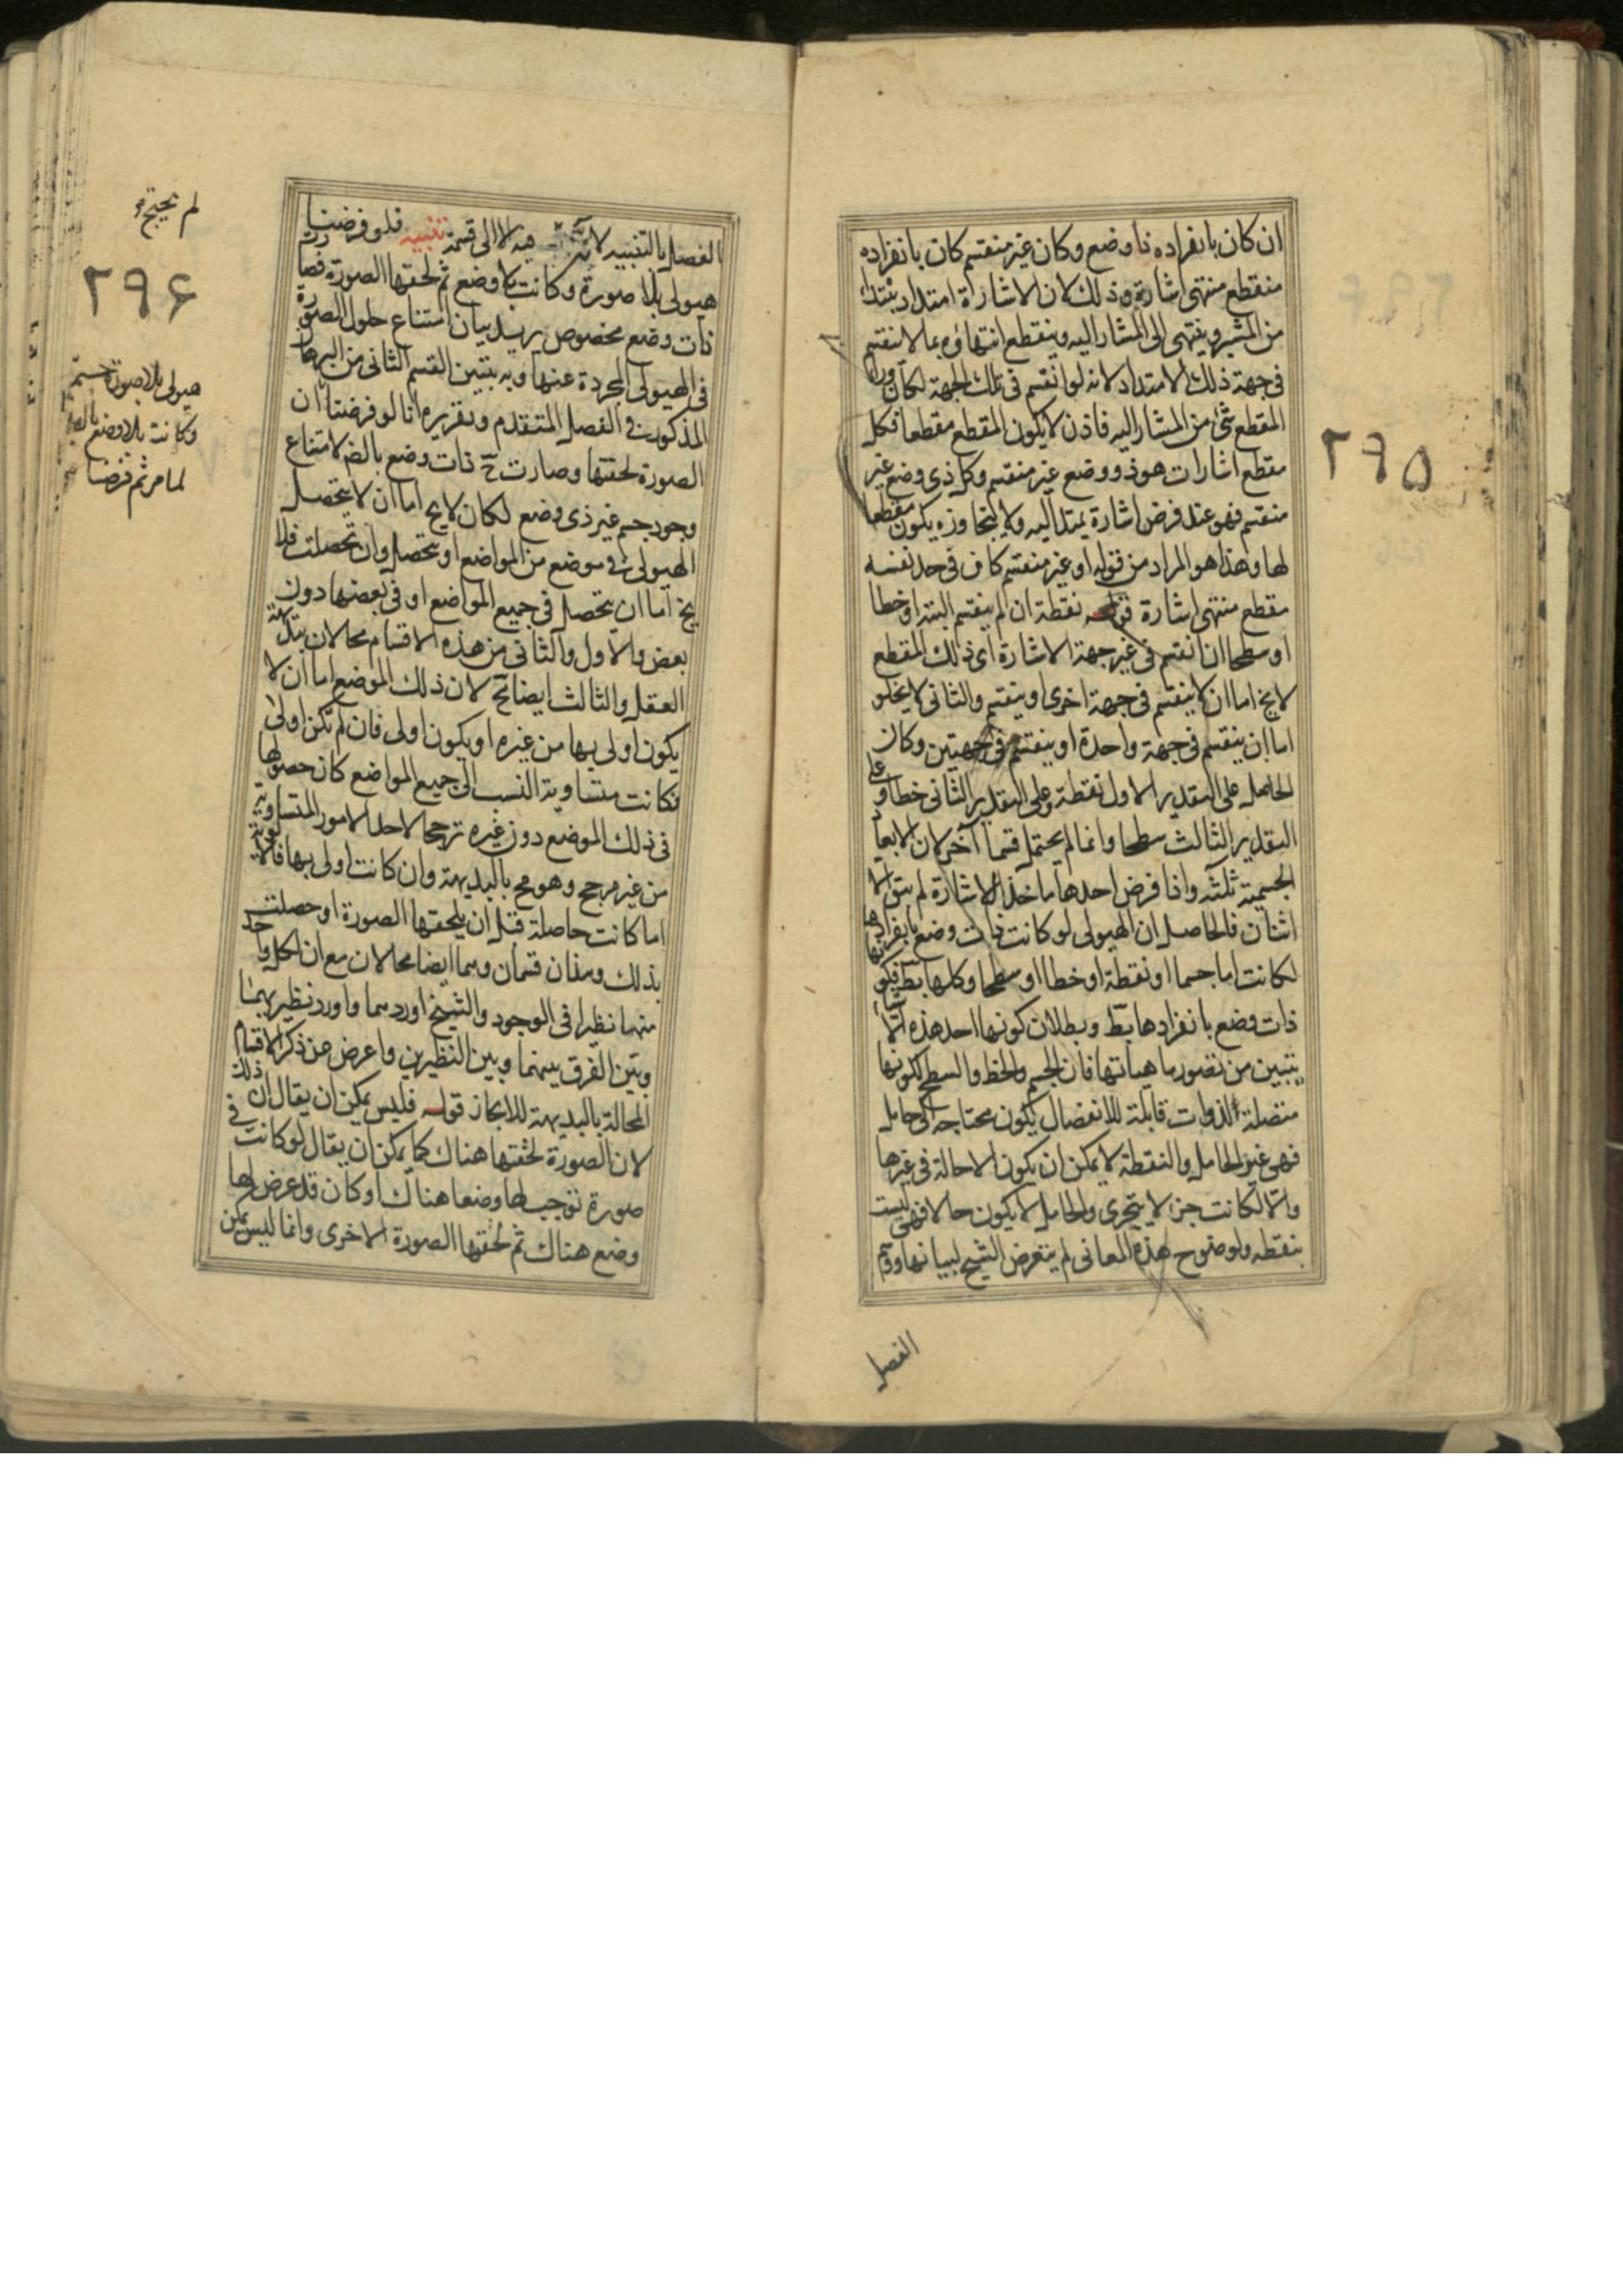 ان كان بانفراده ذا وضع وكان غير منقسم كان بانفراده
منقطع منتهى اشارة وذلك لان الاشارة امتداد يبتدا
من المشير وينتهى الى المشار اليه وينقطع انتهاؤه بما لا ينقسم
فى جهة ذلك الامتداد لانه لو انقسم فى تلك الجهة لكان وراء
المقطع شئ من المشار اليه فاذن لا يكون المقطع مقطعا فكل
مقطع اشارات هو ذو وضع غير منقسم وكل ذى وضع غير
منقسم فهو عند فرض اشارة يمتد اليه ولا يتجاوزه يكون مقطعا
لها وهذا هو المراد من قوله او غير منقسم كان فى حد نفسه
مقطع منتهى اشارة قوله نقطة ان لم ينقسم البتة او خطا
او سطحا ان انقسم فى غير جهة الاشارة اى ذلك المقطع
لا يخ اما ان لا ينقسم فى جهة اخرى او ينقسم والثانى لا يخلو
اما ان ينقسم فى جهة واحدة او ينقسم فى جهتين وكان
الحاصل على التقدير الاول نقطة وعلى التقدير الثانى خطا وعلى
التقدير الثالث سطحا وانما لم يحتمل قسما آخر لان الابعاد
الجسمية ثلثه واذا فرض احدها ماخذ الاشارة لم يبق الا
اثنان فالحاصل ان الهيولى لو كانت ذات وضع بانفرادها
لكانت اما جسما او نقطة او خطا او سطحا وكلها بط فكونها
ذات وضع بانفرادها بط وبطلان كونها احد هذه الاشيا
يتبين من تصور ماهياتها فان الجسم والخط والسطح لكونها
متصلة الذوات قابلة للانفصال يكون محتاجه الى حامل
فهى غير الحامل والنقطة لا يمكن ان يكون الا حالة فى غيرها
والا لكانت جزءا لا يتجزى والحامل لا يكون حالا فهى ليست
بنقطه ولوضوح هذه المعانى لم يتعرض الشيخ لبيانها ووسم
الفصل
٢٩٥
الفصل بالتنبيه لانه فيه لا الى قسمة تنبيه فلو فرضنا
هيولى بلا صورة وكانت بلا وضع ثم لحقتها الصورة فصارت
ذات وضع مخصوص يريد بيان امتناع حلول الصورة
فى الهيولى المجردة عنها وبه يتبين القسم الثانى من البرهان
المذكور فى الفصل المتقدم وتقريره انا لو فرضنا ان
الصورة لحقتها وصارت ح ذات وضع بالضر لامتناع
وجود جسم غير ذى وضع لكان لا يخ اما ان لا يتحصل
الهيولى فى موضع من المواضع او يتحصل وان تحصلت فلا
يخ اما ان يتحصل فى جميع المواضع او فى بعضها دون
بعض والاول والثانى من هذه الاقسام محالان ببديهة
العقل والثالث ايضا مح لان ذلك الموضع اما ان لا
يكون اولى بها من غيره او يكون اولى فان لم تكن اولى
فكانت متساوية النسب الى جميع المواضع كان حصولها
فى ذلك الموضع دون غيره ترجحا لاحد الامور المتساوية
من غير مرجح وهو مح بالبديهة وان كانت اولى بها فالاولوية
اما كانت حاصلة قبل ان يلحقها الصورة او حصلت
بذلك وهذان قسمان وهما ايضا محالان مع ان لكل واحد
منهما نظيرا فى الوجود والشيخ اوردهما واورد نظيريهما
وبين الفرق بينهما وبين النظيرين واعرض عن ذكر الاقسام
المحالة بالبديهة للايجاز قوله فليس يمكن ان يقال ان ذلك
لان الصورة لحقتها هناك كما يمكن ان يقال لو كانت فى
صورة توجب لها وضعا هناك او كان قد عرض لها
وضع هناك ثم لحقتها الصورة الاخرى وانما ليس يمكن
لم يحتج
٢٩۶
هيولى بلا صورة
وكانت بلا وضع
لما مر ثم فرضنا